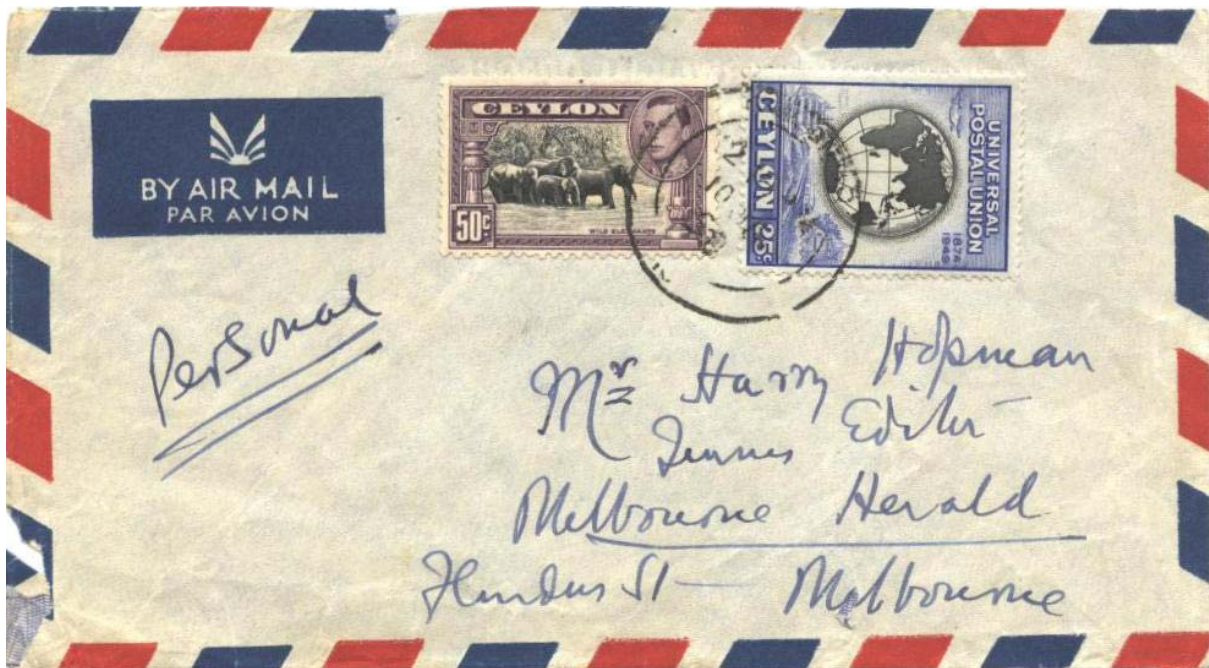 BY AIR MAIL
PAR AVION
CEYLON
50c
WILD ELEPHANTS
CEYLON 25c
UNIVERSAL
POSTAL UNION
1874
1949
Personal
Mr Harry Hopman
Tennis Editor
Melbourne Herald
Flinders St — Melbourne